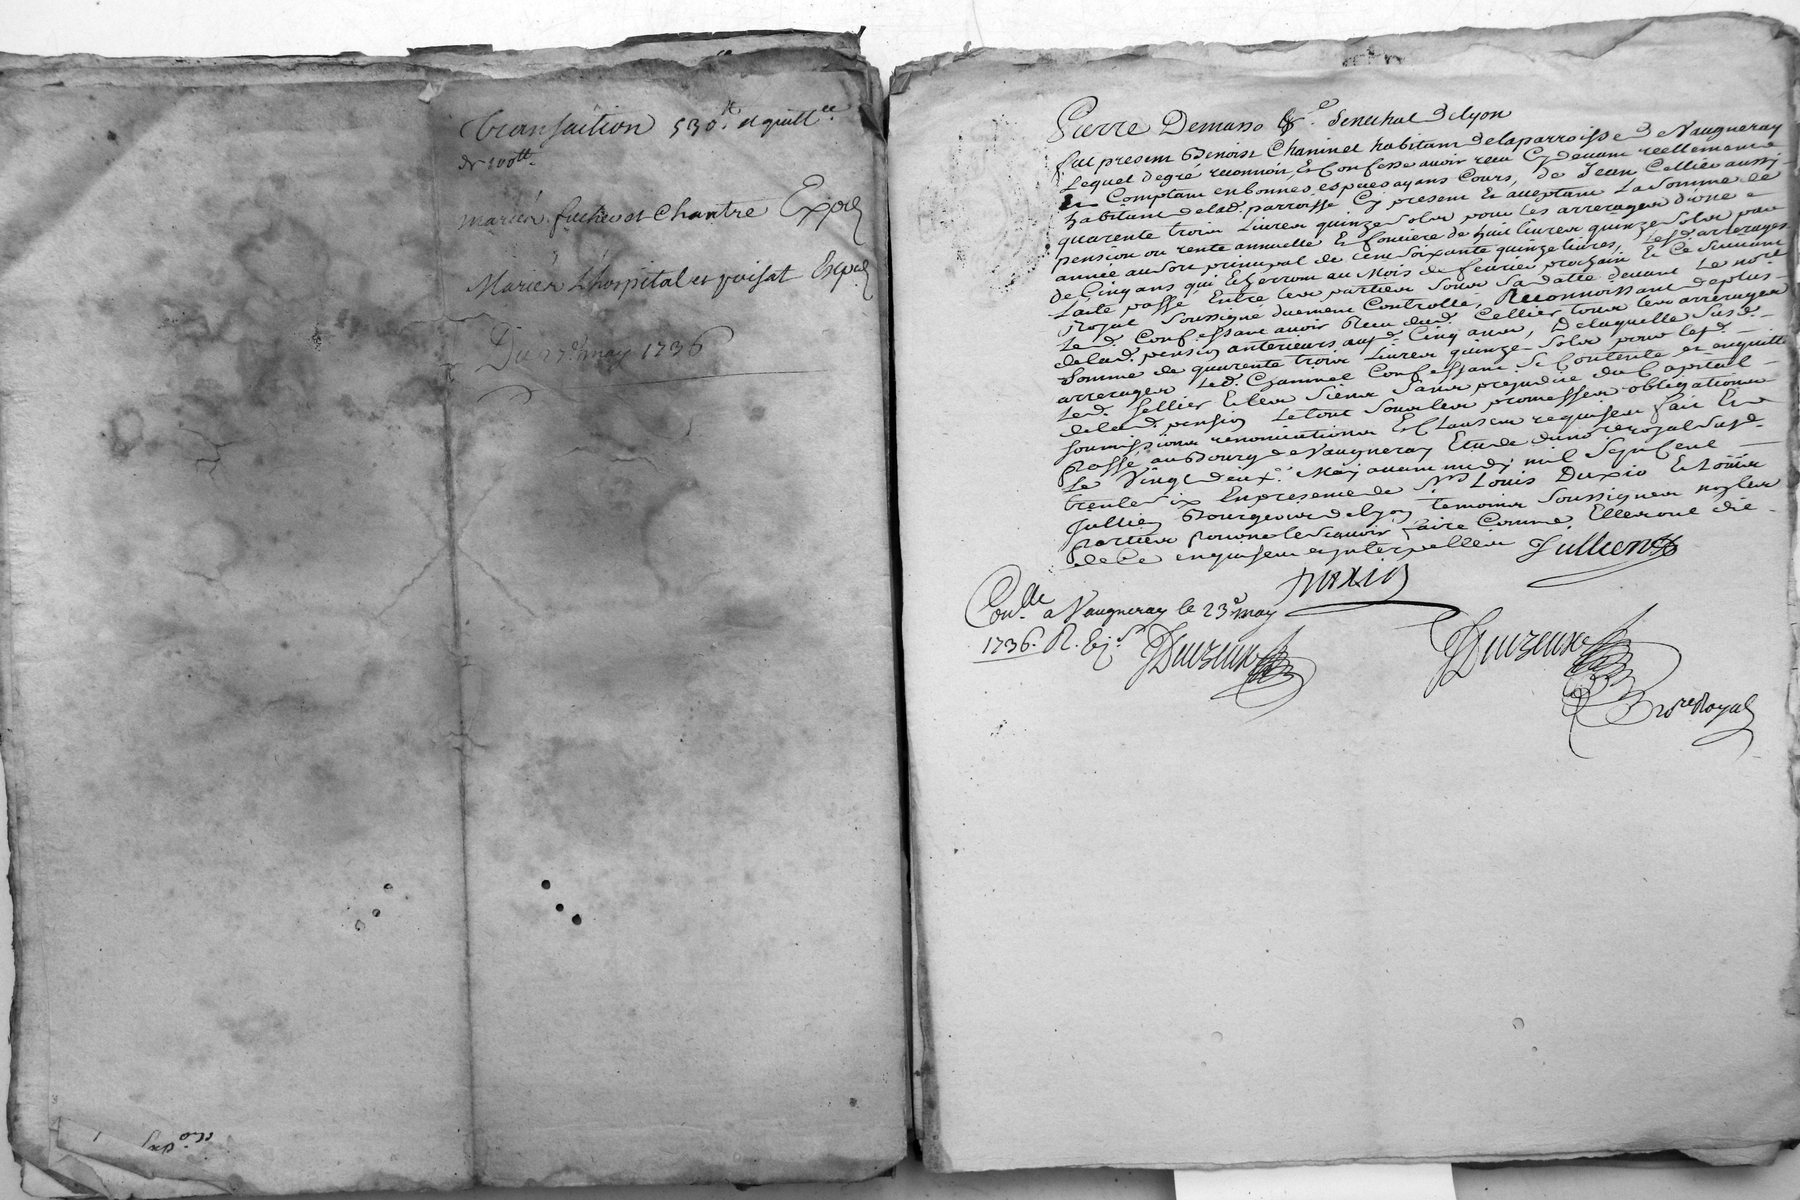 transaction 530tt. et quitt.ce
de 100tt.
mariés fuchet et Chantre Expe.
Mariés L'hospital et poisat Expe.
Du 17e may 1736
Pierre Demasso &c.e Senechal de lyon
fut present Benoist Chaninel habitant de la parroisse de Vaugneray
Lequel de gré reconnoit, et Confesse avoir receu Cy devant reellement
et Comptant en bonnes especes ayans Cours, de Jean Cellier aussi
habitant de lad. parroisse Cy present et aceptant La Somme de
quarente trois Livres quinze Sols pour les arrerages d'une
pension ou rente annuelle et fonciere de huit livres quinze Sols par
année au Sort principal de cent Soixante quinze livres, Lesd. arrerages
de Cinq ans qui Echerront au Mois de fevrier prochain Et Ce Suivant
Lacte passé Entre les parties Sous Sa datte devant Le not.re
Royal Soussigné duement Controllé, Reconnoissant de plus
Led. Confessant avoir Receu dud. Cellier tous les arrerages
de lad. pension anterieurs auxd. Cinq ans, De laquelle Susd.
Somme de quarente trois Livres quinze Sols pour lesd.
arrerages Led. Chaninel Confessant Se Contente et en quitte
Led. Cellier Et les Siens Sans prejudice du Capital
de lad. pension Le tout Sous les promesses obligations
Soumissions renonciations et Clauses requises fait Et
passé au Bourg de Vaugneray Etude du no.re royal Susd.
Le Vingt deux.e May avant midy mil Sept Cent
trente Six En presence de Srs Louis Duxio et
Jullien Bourgeois de lyon temoins Soussignés non les
parties pour ne le Scavoir faire Comme Elles ont dit
de Ce enquises et interpellées Jullien
Duxio
Con.lle a Vaugneray le 23e may
1736. R. Duvieux
Duvieux
No.re Royal